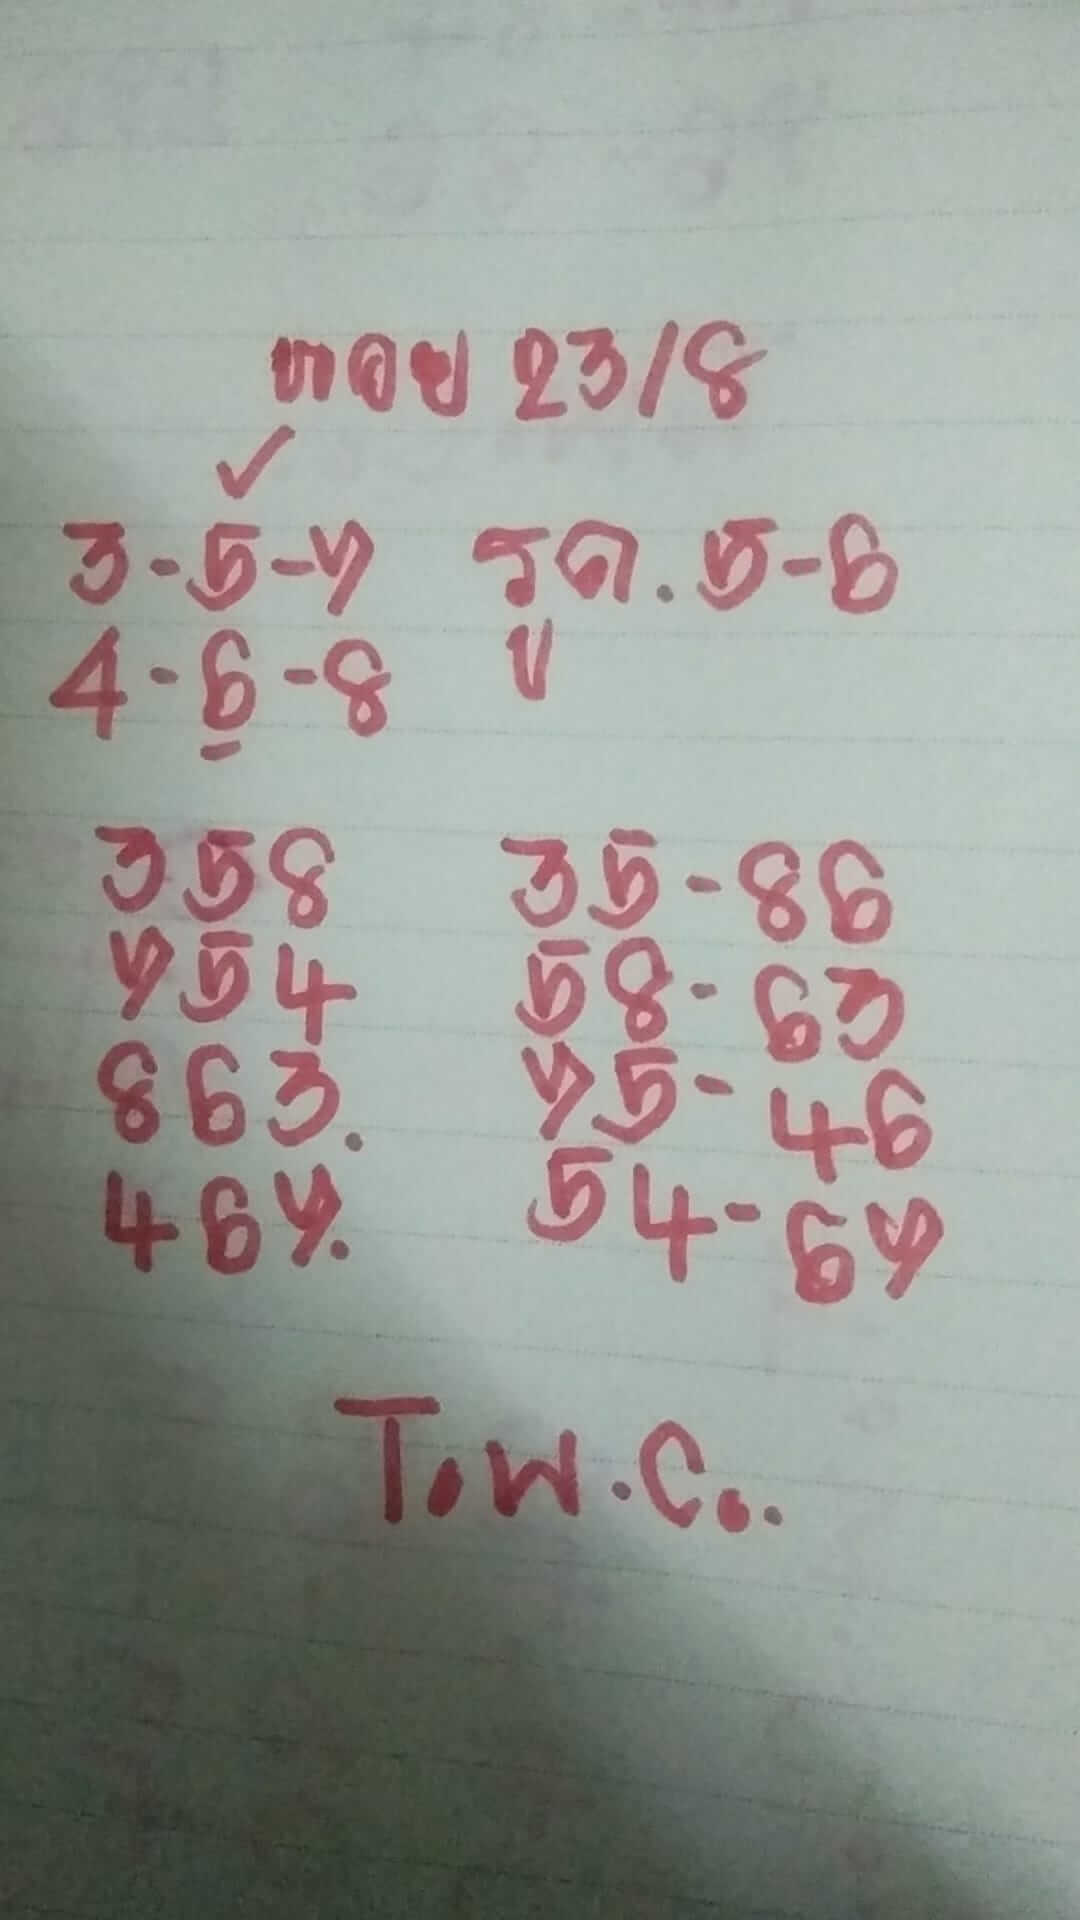 หอย 23/8
✓
3-5-7 รูด. 5-6
4-6-8
358 35-86
754 58-63
863. 75-46
467. 54-67
T.W.C..